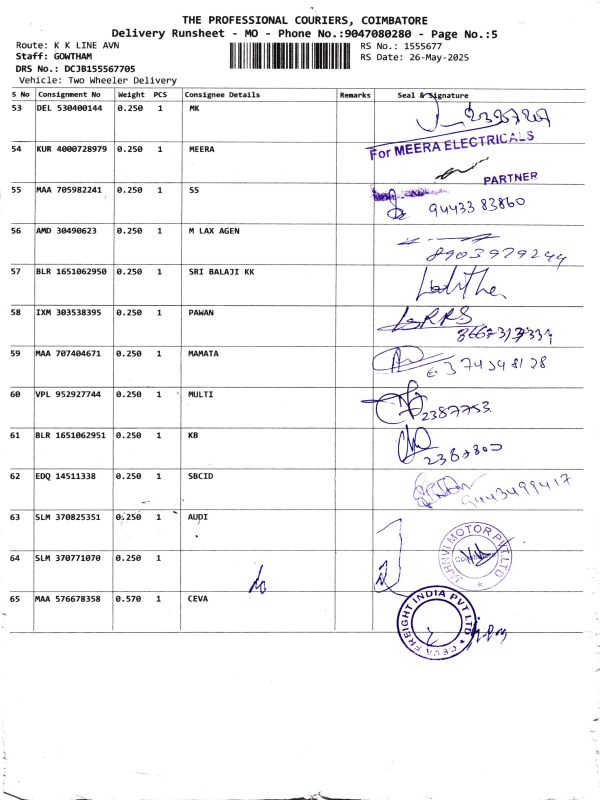 THE PROFESSIONAL COURIERS, COIMBATORE
Delivery Runsheet - MO - Phone No.:9047080280 - Page No.:5
Route: K K LINE AVN RS No.: 1555677
Staff: GOWTHAM RS Date: 26-May-2025
DRS No.: DCJB155567705
Vehicle: Two Wheeler Delivery
S No Consignment No Weight PCS Consignee Details Remarks Seal & Signature
53 DEL 530400144 0.250 1 MK
54 KUR 4000728979 0.250 1 MEERA For MEERA ELECTRICALS
PARTNER
55 MAA 705982241 0.250 1 SS 94433 83860
56 AMD 30490623 0.250 1 M LAX AGEN
8903979244
57 BLR 1651062950 0.250 1 SRI BALAJI KK
58 IXM 303538395 0.250 1 PAWAN
59 MAA 707404671 0.250 1 MAMATA
60 VPL 952927744 0.250 1 MULTI
2387753
61 BLR 1651062951 0.250 1 KB
2387800
62 EDQ 14511338 0.250 1 SBCID 9443499417
63 SLM 370825351 0.250 1 AUDI JAHNVI MOTOR PVT LTD
64 SLM 370771070 0.250 1
65 MAA 576678358 0.570 1 CEVA CEVA FREIGHT INDIA PVT LTD